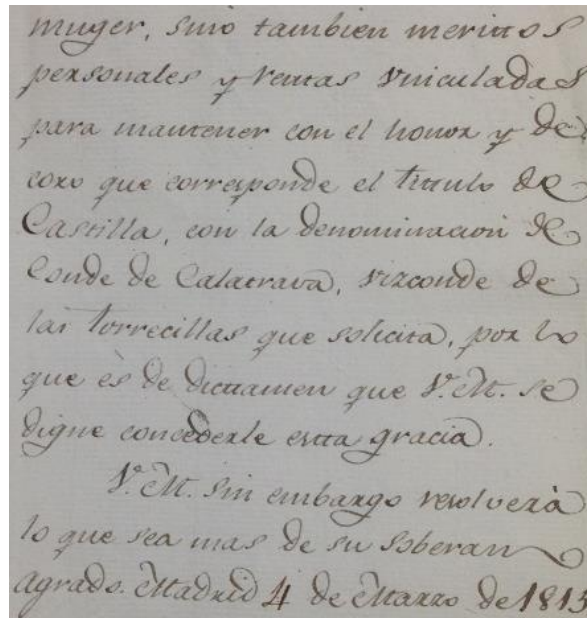 muger, sino tambien merittos
personales y rentas vinculadas
para mantener con el honor y de
coro que corresponde el titulo de
Castilla, con la denominacion de
Conde de Calatrava, vizconde de
las Torrecillas que solicita, por lo
que ès de dictamen que V. M. se
digne concederle estta gracia.
V. M. sin embargo resolverà
lo que sea mas de su soberan
agrado. Madrid 4 de Marzo de 1815